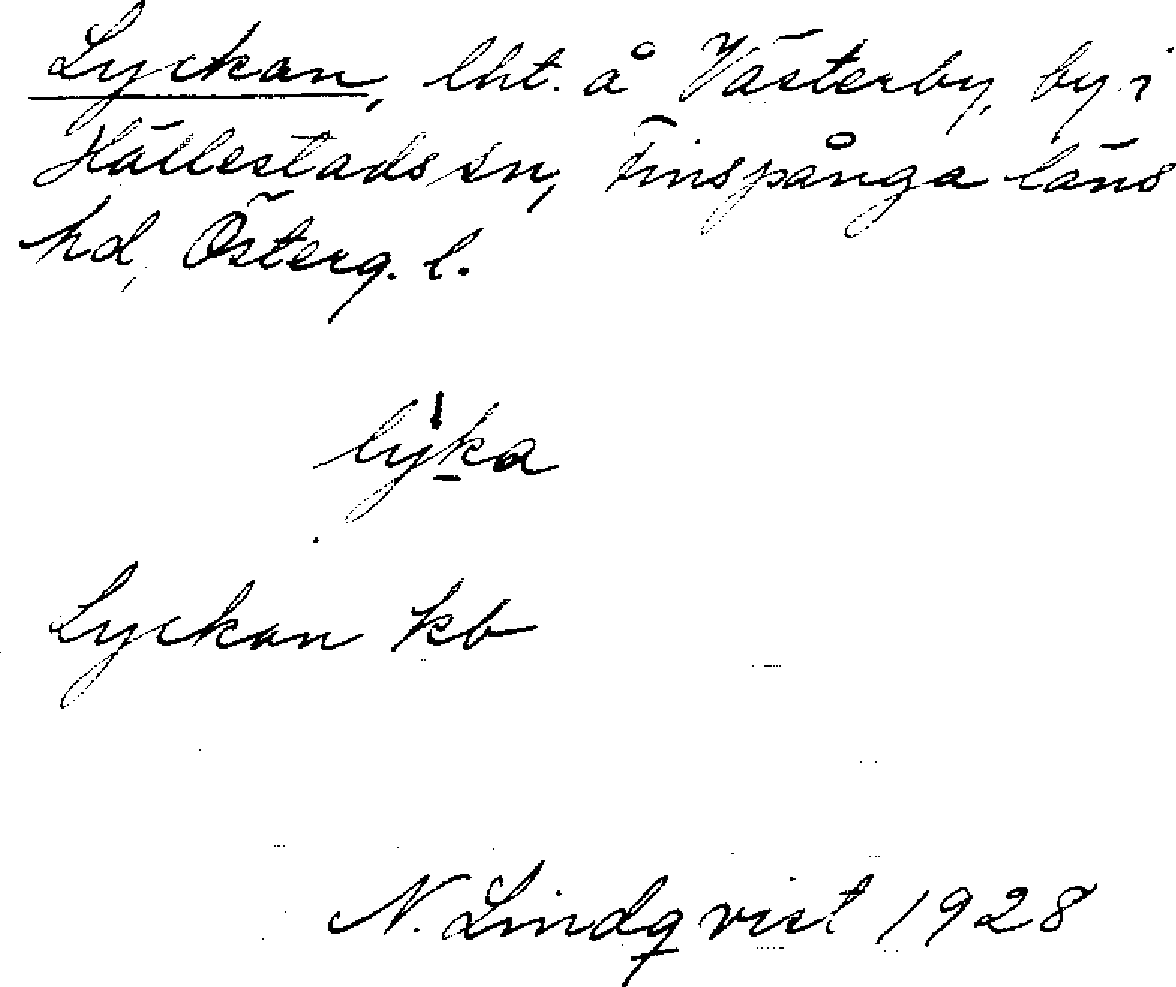 Lyckan, lht. å Västerby, by i
Hällestads sn, Finspånga läns
hd, Österg. l.
lỳk̠a
Lyckan kb
N. Lindqvist 1928